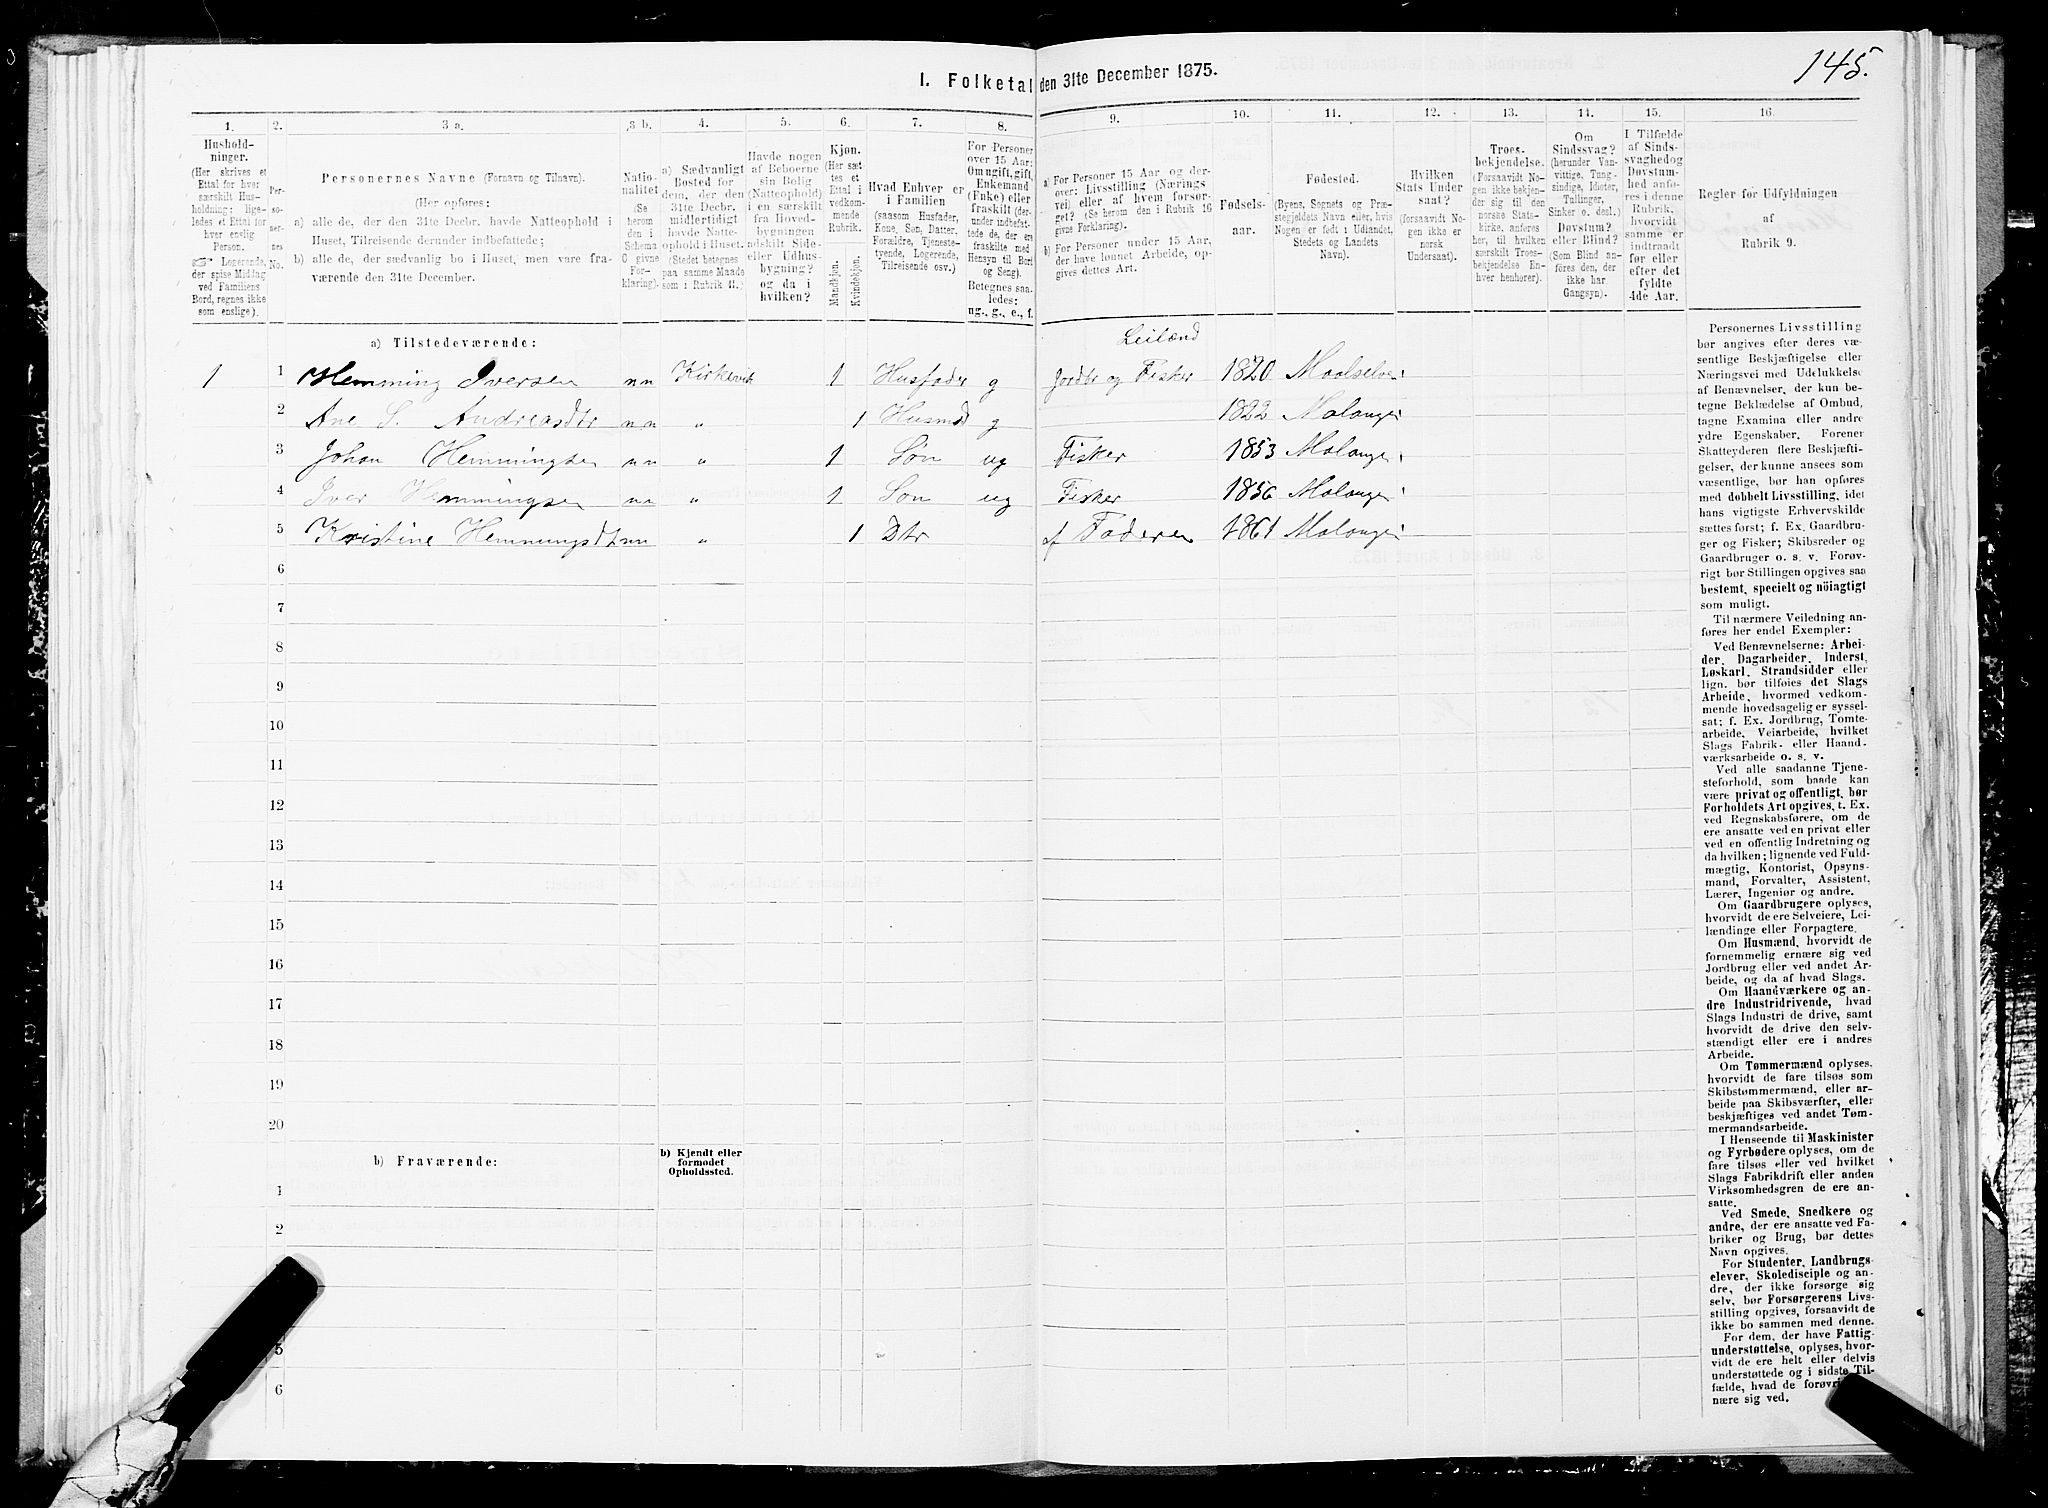 145.
I. Folketal den 31te December 1875.
1. 2. 3 a. 3 b. 4. 5. 6. 7. 8. 9. 10. 11. 12. 13. 14. 15. 16.
Hushold-
ninger.
(Her skrives et
Ettal for hver
særskilt Hus-
holdning; lige-
ledes et Ettal for
hver enslig
Person.
☞ Logerende,
der spise Middag
ved Familiens
Bord, regnes ikke
som enslige).
Per-
so-
ner-
nes
No.
Personernes Navne (Fornavn og Tilnavn).
(Her opføres:
a) alle de, der den 31te Decbr. havde Natteophold i
Huset, Tilreisende derunder indbefattede;
b) alle de, der sædvanlig bo i Huset, men vare fra-
værende den 31te December.
Natio-
nalitet
(Se
herom
den i
Schema
C givne
For-
klaring).
a) Sædvanligt
Bosted for
dem, der den
31te Decbr.
midlertidigt
havde Natte-
ophold i Huset.
(Stedet betegnes
paa samme Maade
som i Rubrik 11.)
Havde nogen
af Beboerne
sin Bolig
(Natteophold)
i en særskilt
fra Hoved-
bygningen
adskilt Side-
eller Udhus-
bygning?
og da i
hvilken?
Kjøn.
(Her sæt-
tes et
Ettal i
vedkom-
mende
Rubrik.
Mandkjøn.
Kvindekjøn.
Hvad Enhver er
i Familien
(saasom Husfader,
Kone, Søn, Datter,
Forældre, Tjeneste-
tyende, Logerende,
Tilreisende osv.)
For Personer
over 15 Aar;
Om ugift, gift,
Enkemand
(Enke) eller
fraskilt (der-
under indbefat-
tede de, der ere
fraskilte med
Hensyn til Bord
og Seng).
Betegnes saa-
ledes:
ug., g., e., f.
a) For Personer 15 Aar og der-
over: Livsstilling (Nærings
vei) eller af hvem forsør-
get? (Se herom den i Rubrik 16
givne Forklaring).
b) For Personer under 15 Aar,
der have lønnet Arbeide, op-
gives dettes Art.
Fødsels-
aar.
Fødested.
(Byens, Sognets og Præ-
stegjeldets Navn eller, hvis
Nogen er født i Udlandet,
Stedets og Landets
Navn).
Hvilken
Stats Under
saat?
(forsaavidt No-
gen ikke er
norsk
Undersaat).
Troes-
bekjendelse.
(Forsaavidt No-
gen ikke bekjen-
der sig til den
norske Stats-
kirken, anføres
her, til hvilken
særskilt Troes-
bekjendelse En-
hver henhører).
Om
Sindssvag?
(herunder Van-
vittige, Tung-
sindige, Idioter,
Tullinger,
Sinker o. desl.)
Døvstum?
eller Blind?
(Som Blind an-
føres den, der
ikke har
Gangsyn).
I Tilfælde
af Sinds-
svaghed og
Døvstum-
hed anfø-
res i denne
Rubrik,
hvorvidt
samme er
indtraadt
før eller
efter det
fyldte
4de Aar.
Regler for Udfyldningen
af
Rubrik 9.
a) Tilstedeværende:
Leilænd
1 1 Hemming Iversen nn Kirkevik 1 Husfader g Jordbr og Fisker 1820 Maalselven
2 Ane S. Andreasdtr nn " 1 Husmd g 1822 Malangen
3 Johan Hemmingsen nn " 1 Søn ug Fisker 1853 Malangen
4 Iver Hemmingsen nn " 1 Søn ug Fisker 1856 Malangen
5 Kristine Hemmingsdt nn " 1 Dtr af Faderen 1861 Malangen
6
7
8
9
10
11
12
13
14
15
16
17
18
19
20
b) Fraværende:
b) Kjendt eller
formodet
Opholdssted.
1
2
5
6
Personernes Livsstilling
bør angives efter deres væ-
sentlige Beskjæftigelse eller
Næringsvei med Udelukkelse
af Benævnelser, der kun be-
tegne Beklædelse af Ombud,
tagne Examina eller andre
ydre Egenskaber. Forener
Skatteyderen flere Beskjæfti-
gelser, der kunne ansees som
væsentlige, bør han opføres
med dobbelt Livsstilling, idet
hans vigtigste Erhvervskilde
sættes først; f. Ex. Gaardbru-
ger og Fisker; Skibsreder og
Gaardbruger o. s. v. Forøv-
rigt bør Stillingen opgives saa
bestemt, specielt og nöiagtigt
som muligt.
Til nærmere Veiledning an-
føres her endel Exempler:
Ved Benævnelserne: Arbei-
der, Dagarbeider, Inderst,
Løskarl, Strandsidder eller
lign. bør tilføies det Slags
Arbeide, hvormed vedkom-
mende hovedsagelig er syssel-
sat; f. Ex. Jordbrug, Tomte-
arbeide, Veiarbeide, hvilket
Slags Fabrik- eller Haand-
værksarbeide o. s. v.
Ved alle saadanne Tjene-
steforhold, som baade kan
være privat og offentligt, bør
Forholdets Art opgives, t. Ex.
ved Regnskabsførere, om de
ere ansatte ved en privat eller
ved en offentlig Indretning og
da hvilken; lignende ved Fuld-
mægtig, Kontorist, Opsyns-
mand, Forvalter, Assistent,
Lærer, Ingeniør og andre.
Om Gaardbrugere oplyses,
hvorvidt de ere Selveiere, Lei-
lændinge eller Forpagtere.
Om Husmænd, hvorvidt de
fornemmelig ernære sig ved
Jordbrug eller ved andet Ar-
beide, og da af hvad Slags.
Om Haandværkere og an-
dre Industridrivende, hvad
Slags Industri de drive, samt
hvorvidt de drive den selv-
stændigt eller ere i andres
Arbeide.
Om Tømmermænd oplyses,
hvorvidt de fare tilsøs som
Skibstømmermænd, eller ar-
beide paa Skibsværfter, eller
beskjæftiges ved andet Tøm-
mermandsarbeide.
I Henseende til Maskinister
og Fyrbødere oplyses, om de
fare tilsøs eller ved hvilket
Slags Fabrikdrift eller anden
Virksomhedsgren de ere an-
satte.
Ved Smede, Snedkere og
andre, der ere ansatte ved Fa-
briker og Brug, bør dettes
Navn opgives.
For Studenter, Landbrugs-
elever, Skoledisciple og an-
dre, der ikke forsørge sig
selv, bør Forsørgerens Livs-
stilling opgives, forsaavidt de
ikke bo sammen med denne.
For dem, der have Fattig-
understøttelse, oplyses, hvor-
vidt de ere helt eller delvis
understøttede og i sidste Til-
fælde, hvad de forøvri
nære sig ved.